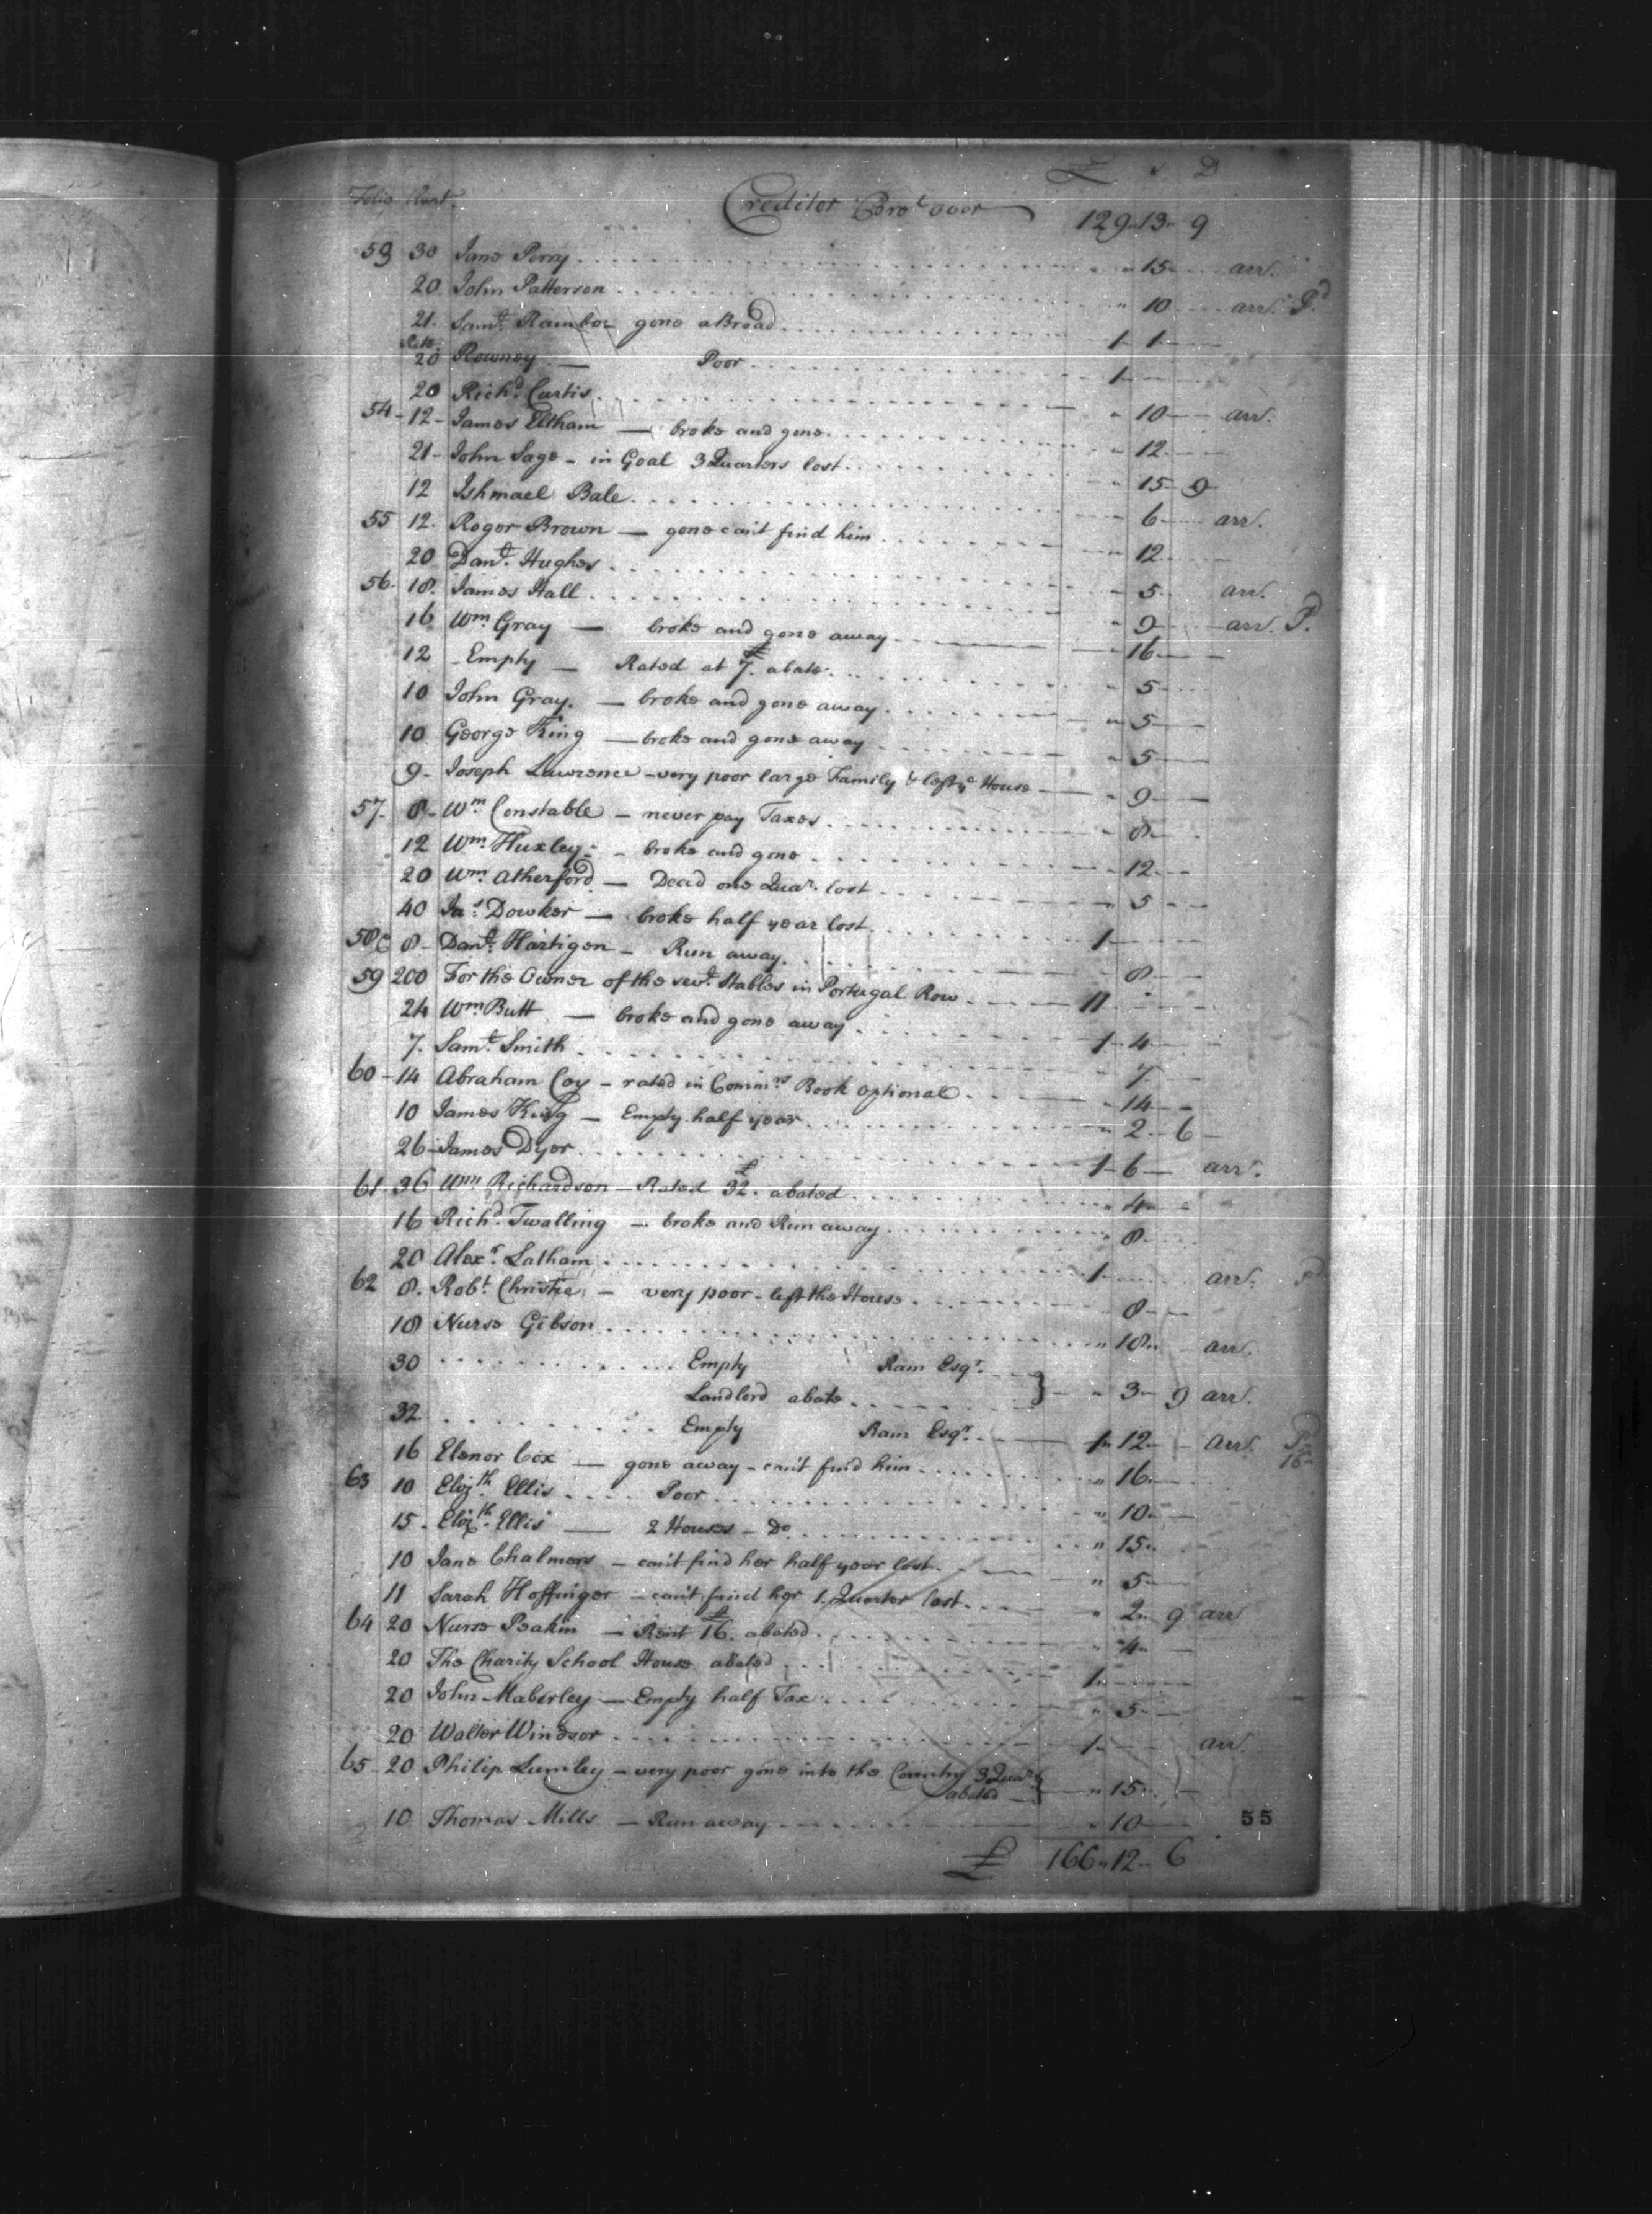 £ s D
Folio Rent. Creditor Brot over 129 " 13 " 9
59 30 Jane Perry " 15 arr.
20 John Patterson " 10 arr. Pd
21. Saml. Rambor gone aBroad 1 1
Rate 20 Rowney — Poor 1
20 Richd. Curtis " 10 arr.
54 - 12 - James Eltham — broke and gone " 12
21 - John Sage - in Goal 3 Quarters lost " 15 9
12 Ishmael Bale " 6 arr.
55 12. Roger Brown — gone can't find him " 12
20 Danl. Hughes " 5 arr.
56. 18. James Hall " 9 arr. Pd.
16 Wm. Gray — broke and gone away " 16
12 Empty — Rated at £7. abate " 5
10 John Gray. — broke and gone away " 5
10 George King — broke and gone away " 5
9 - Joseph Lawrence - very poor large Family & left ye House " 9
57 - 8 - Wm Constable - never pay Taxes " 8
12 Wm. Huxley - broke and gone " 12
20 Wm. Atherford — Dead one Quar. lost " 5
40 Jas. Dowker — broke half year lost 1
58 8 - Danl. Hartigen - Run away " 8
59 200 For the Owner of the sevl. Stables in Portugal Row 11
24 Wm Butt — broke and gone away 1 4
7. Saml. Smith " 7
60 - 14 Abraham Coy - rated in Commrs Book optional " 14
10 James King — Empty half year " 2 6
26 - James Dyer 1 6 arr.
61 36 Wm Richardson - Rated £32. abated " 4
16 Richd. Twalling — broke and Run away " 8
20 Alexr. Latham 1 arr. Pd
62 8. Robt. Christie — very poor - left the House 8
18 Nurse Gibson " 18 arr.
30 Empty Ram Esqr.
Landlord abate } " 3 9 arr.
32. Empty Ram Esqr. 1 " 12 arr. Pd 16
16 Elenor Cox — gone away - can't find him " 16
63 10 Elizth. Ellis Poor " 10
15. Elizth. Ellis — 2 Houses - Do " 15
10 Jane Chalmers - can't find her half year lost " 5
11 Sarah Hoffinger - can't find her 1 Quarter lost " 2 9 arr
64 20 Nurse Peakin — Rent £16. abated " 4
20 The Charity School House abated 1
20 John Maberley — Empty half Tax " 5
20 Walter Windsor 1 arr.
65 - 20 Philip Lumley - very poor gone into the Country 3 Quars
abated } " 15
10 Thomas Mills — Run away " 10
55
£ 166 " 12 " 6